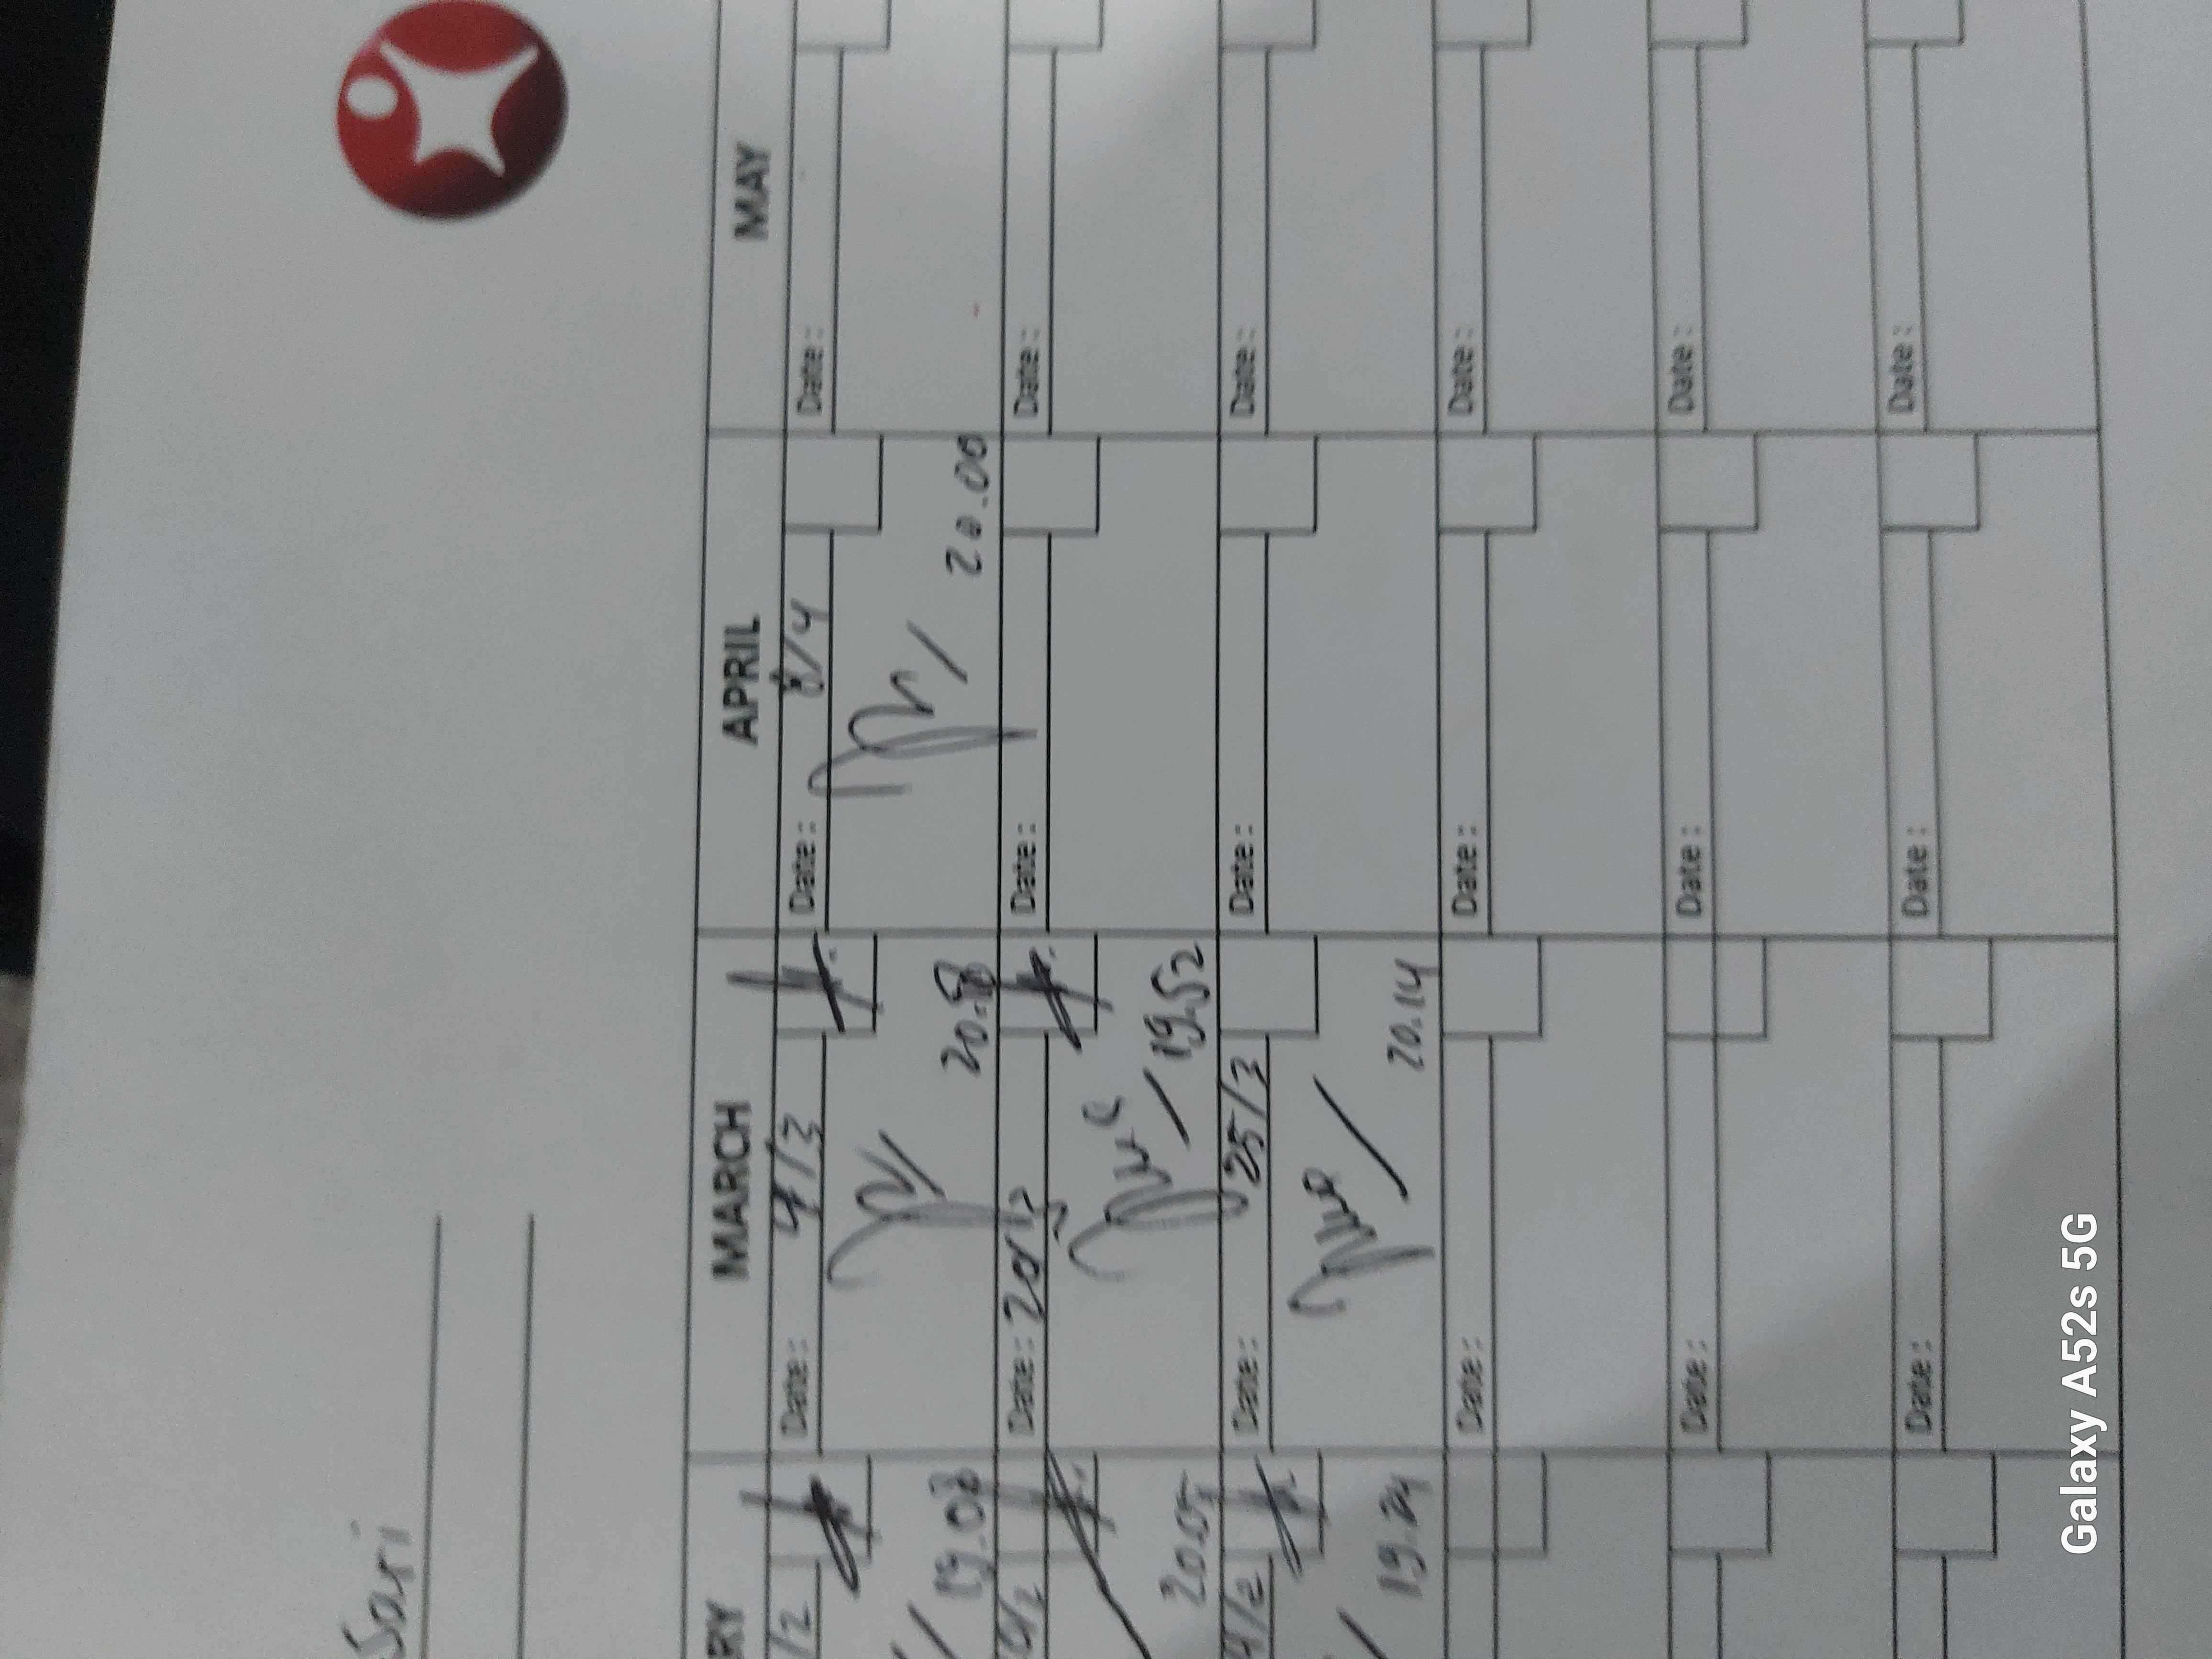 Sari
RY MARCH APRIL MAY
/2 Date:: 4/3 Date:: 8/4 Date::
19.08 20.18 20.00
9/2 Date:: 20/3 Date:: Date::
20.05 19.52
4/2 Date:: 25/3 Date:: Date::
19.24 20.14
Date:: Date:: Date::
Date:: Date:: Date::
Date:: Date:: Date::
Galaxy A52s 5G